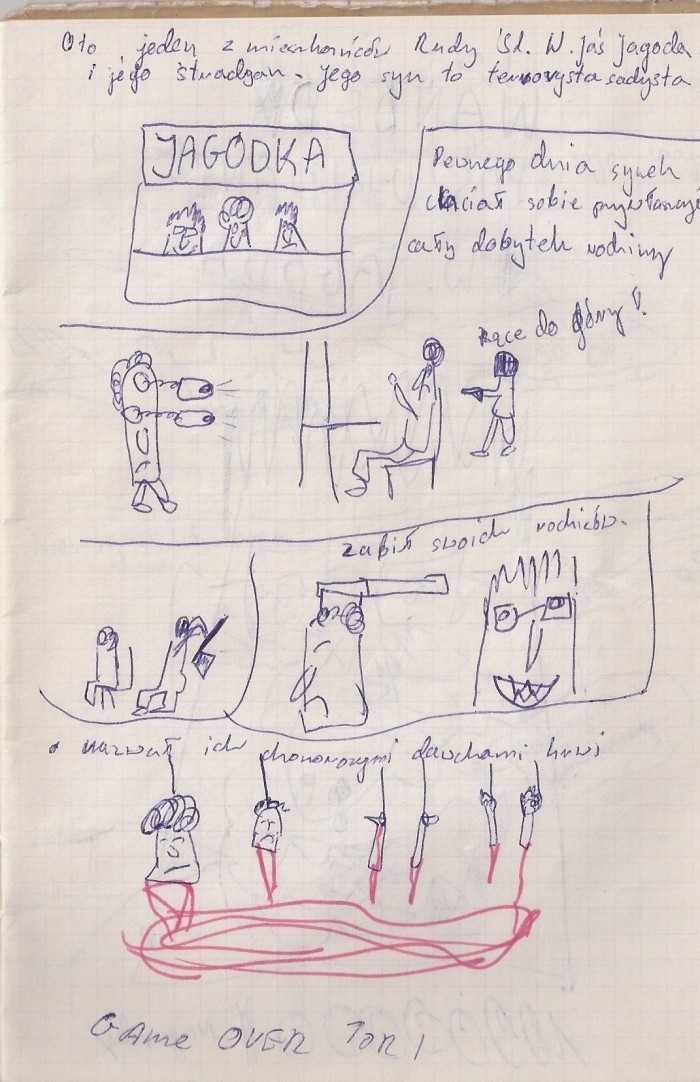 Oto jeden z mieszkańców Rudy Śl. W. Jaś Jagoda
i jego straagan. Jego syn to terrorysta sadysta
JAGODKA
Pewnego dnia synek
chciał sobie przywłaszczyć
cały dobytek rodziny
Ręce do góry!
zabił swoich rodziców.
nazwał ich honorowymi dawcami krwi
GAME OVER TOR!